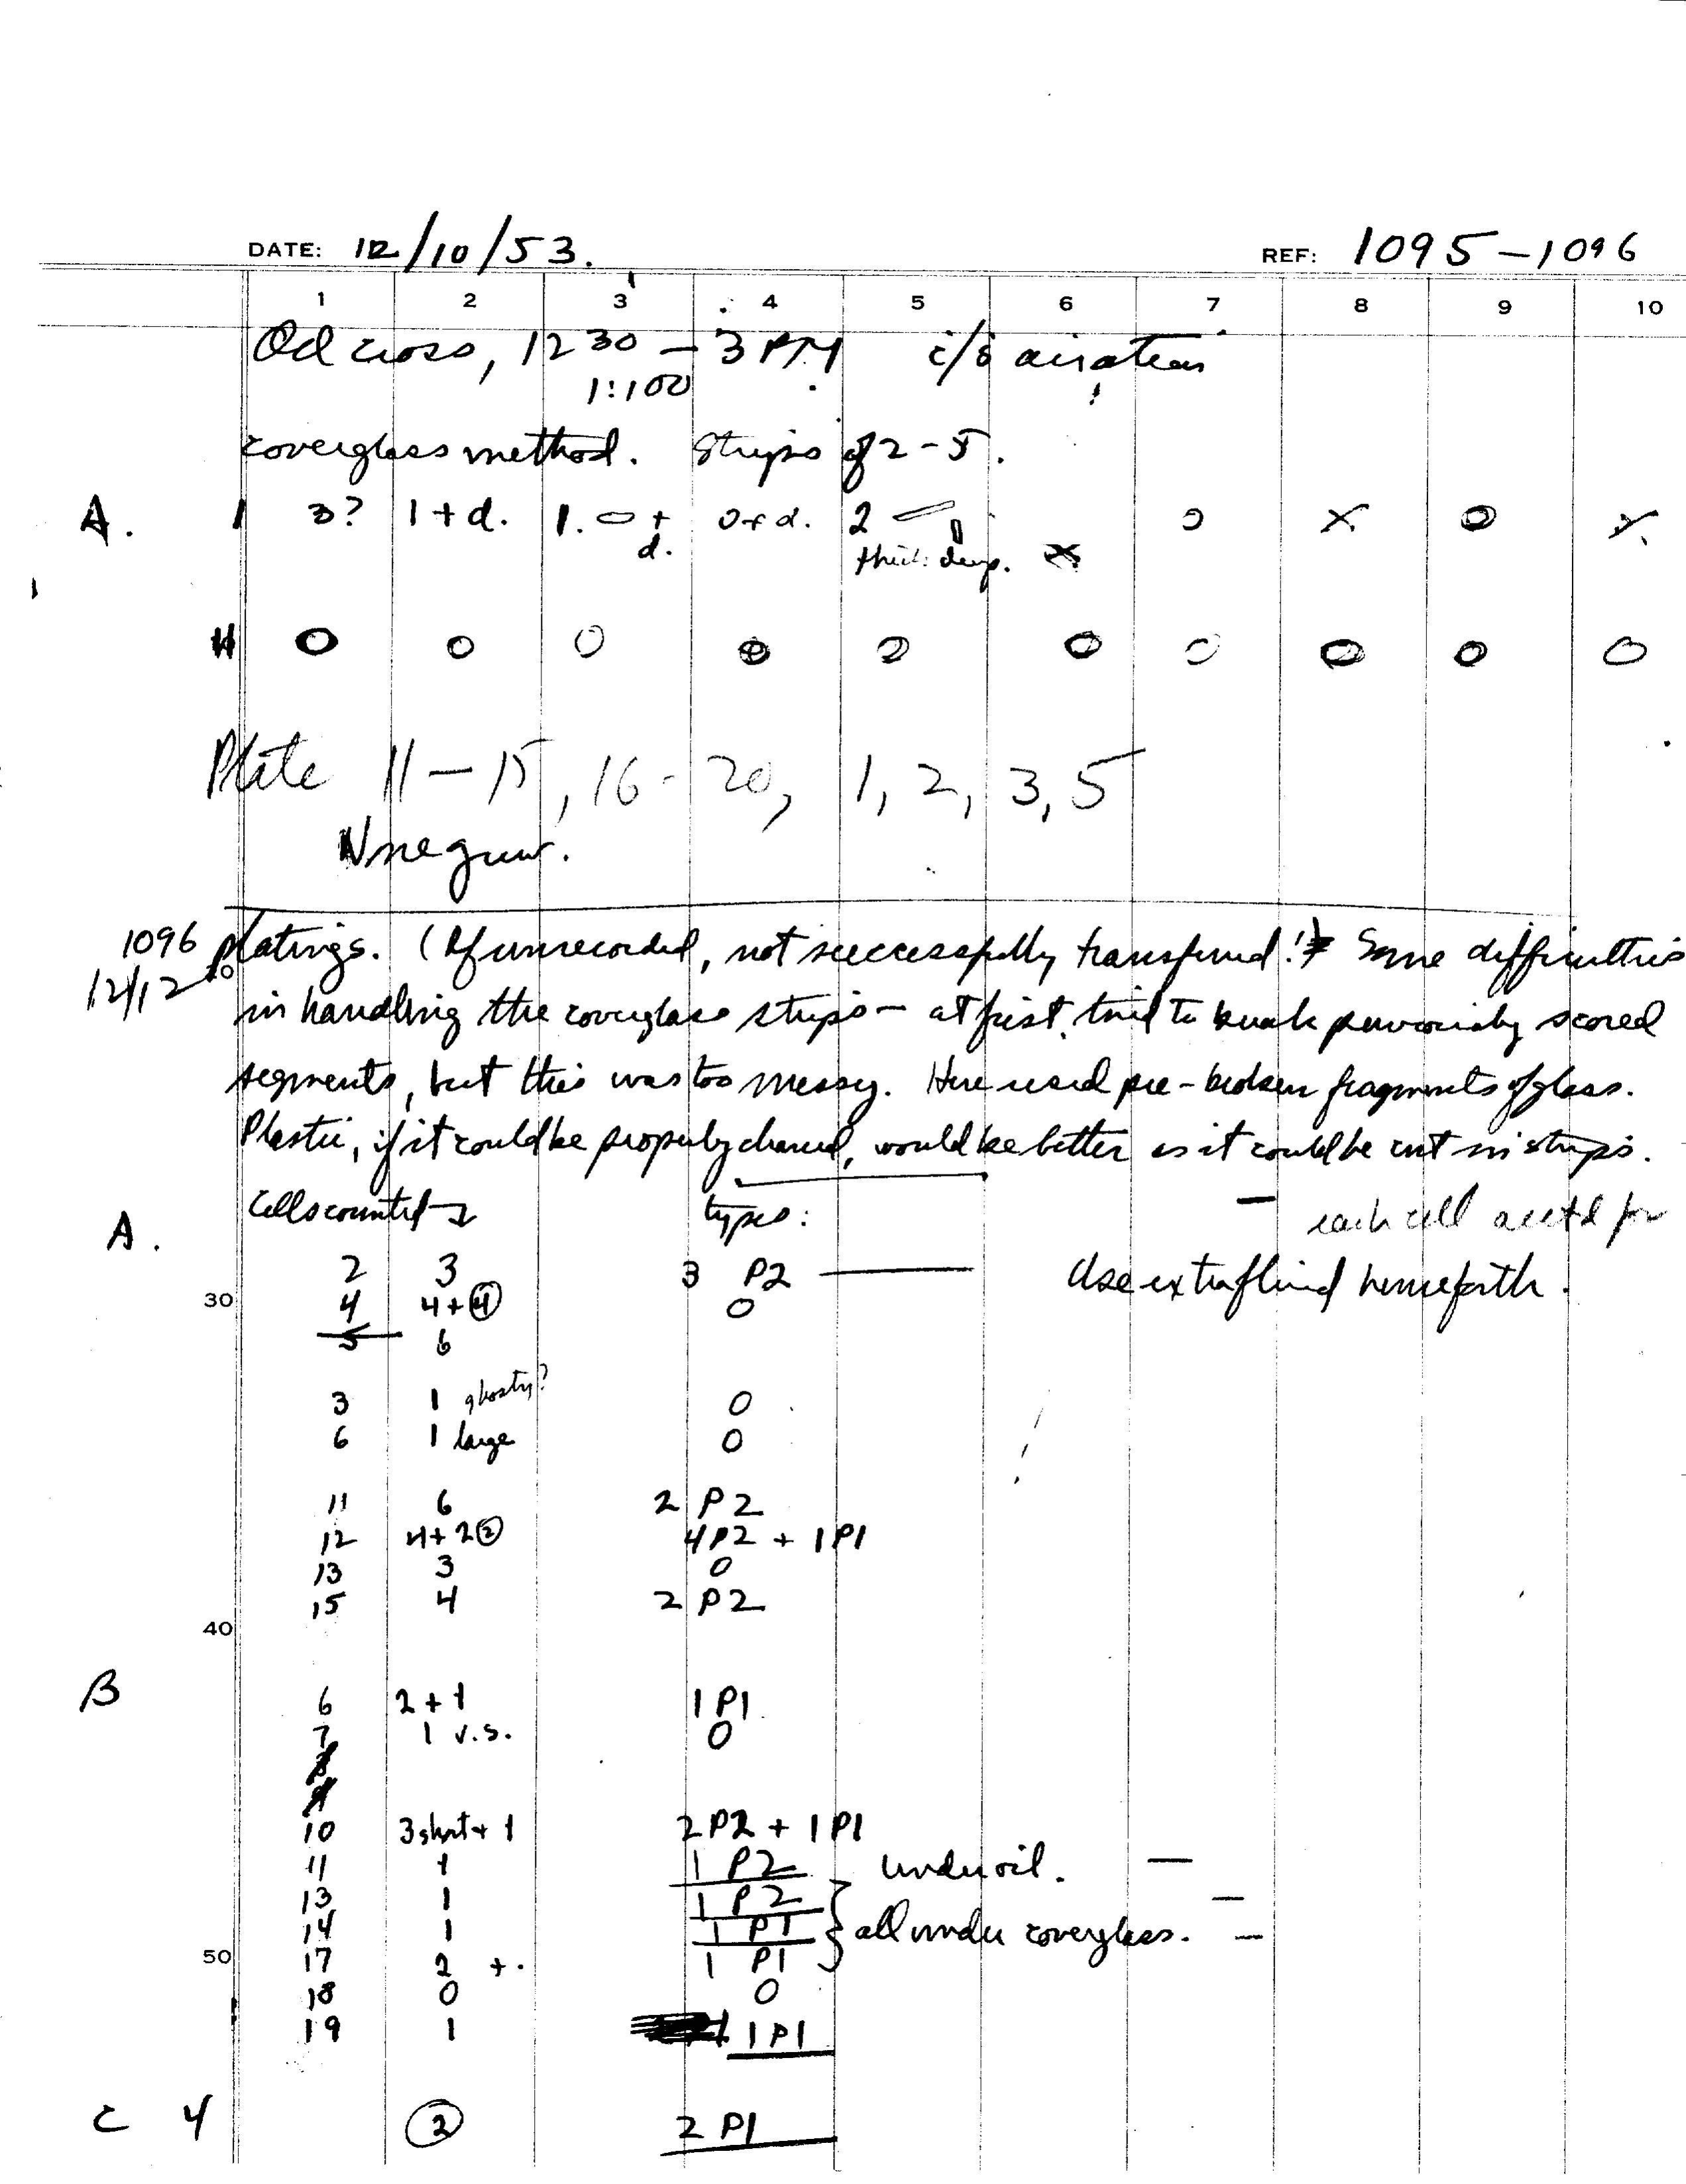 DATE: 12/10/53. REF: 1095-1096
1 2 3 4 5 6 7 8 9 10
cross, 12 30 - 3 PM
1:100
coverglass method. Strips of 2-5.
A. I 3? 1 + d. 1. + d. 0 + d. 2 x 0 x 0 x.
II 0 0 0 0 0 0 0 0 0 0
Plate 11-15, 16-20, 1, 2, 3, 5
None grew.
1096 platings. (If unrecorded, not successfully transferred!) Some difficulties
12/12 in handling the coverglass strips - at first, tried to break previously scored
segments, but this was too messy. Here used pre-broken fragments of glass.
Plastic, if it could be properly cleaned, would be better as it could be cut in strips.
A. Cells counted types: — each cell for
2 3 3 P2 — Use extra fluid henceforth.
30 4 4+④ 0
5 6
3 1 ghosty? 0
6 1 large 0
11 6 2 P2
12 4+2② 4P2 + 1P1
13 3 0
15 4 2 P2
40
B 6 2+1 1P1
7 1 v.s. 0
8
9
10 3 short + 1 2P2 + 1P1
11 1 1 P2 under oil. —
13 1 1 P2 —
14 1 1 P1 } all under coverglass. —
50 17 2 +. 1 P1
18 0 0
19 1 1P1
C 4 ② 2 P1